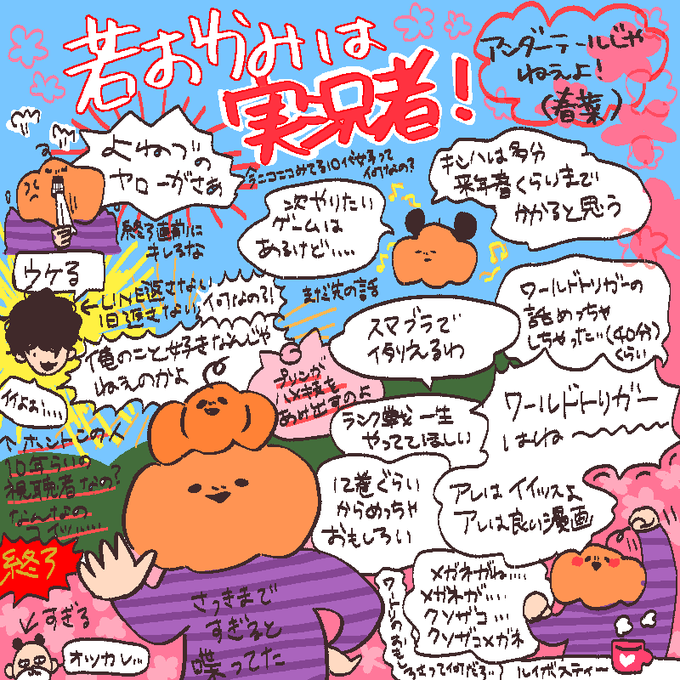 若おかみは
実況者！
アンダーテールじゃ
ねえよ！
(春菜)
よねづの
ヤローがさぁ
終了直前に
キレるな
今ニコニコみてる10代女子って
何なの？
次やりたい
ゲームは
あるけど....
まだ先の話
キンハは多分
来年春くらいまで
かかると思う
ウケる
←LINE返さない
1日返さない
何なの?!
俺のこと好きなんじゃ
ねえのかよ
何よぉ...
↑ホントこの人
10年らいの
視聴者なの？
なんなの
コイツ....
プリンが
ハメ技を
あけ出すのよ
スマブラで
イタリえるわ
ワールドトリガーの
話めっちゃ
しちゃった(40分)
くらい
ランク戦一生
やっててほしい
ワールドトリガー
はね〜
12巻ぐらい
からめっちゃ
おもしろい
アレはイイッスよ
アレは良い漫画
終了
↓すぎる
オツカレ...
さっきまで
すぎると
喋ってた
メガネがね...
メガネが...
クソザコ...
クソザコメガネ
ワートリのおもしろさって何だろ..?
ルイボスティー